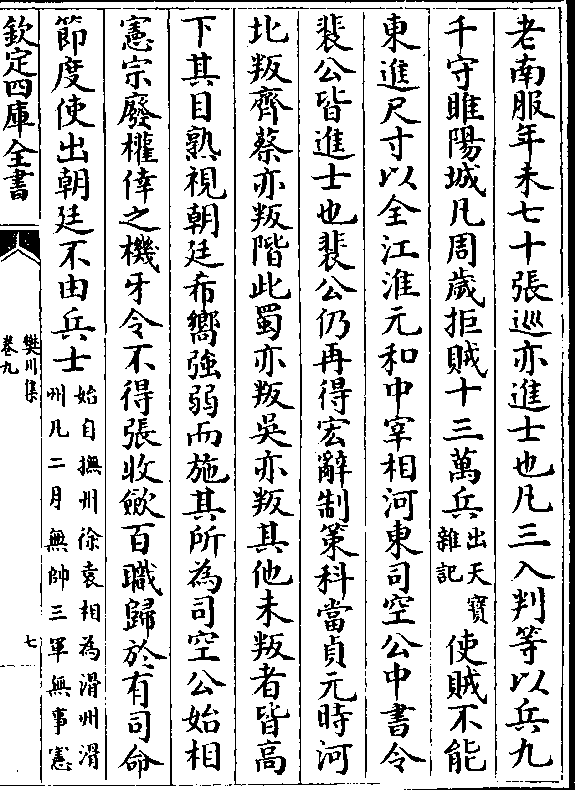 老南服年未七十張巡亦進士也凡三入判等以兵九
千守睢陽城凡周歲拒賊十三萬兵出天寶雜記使賊不能
東進尺寸以全江淮元和中宰相河東司空公中書令
裴公皆進士也裴公仍再得宏辭制策科當貞元時河
北叛齊蔡亦叛階此蜀亦叛吳亦叛其他未叛者皆高
下其目熟視朝廷希嚮強弱而施其所為司空公始相
憲宗廢權倖之機牙令不得張收斂百職歸於有司命
節度使出朝廷不由兵士始自撫州徐袁相為滑州滑州凡二月無帥三軍無事憲
欽定四庫全書
樊川集
卷九
七